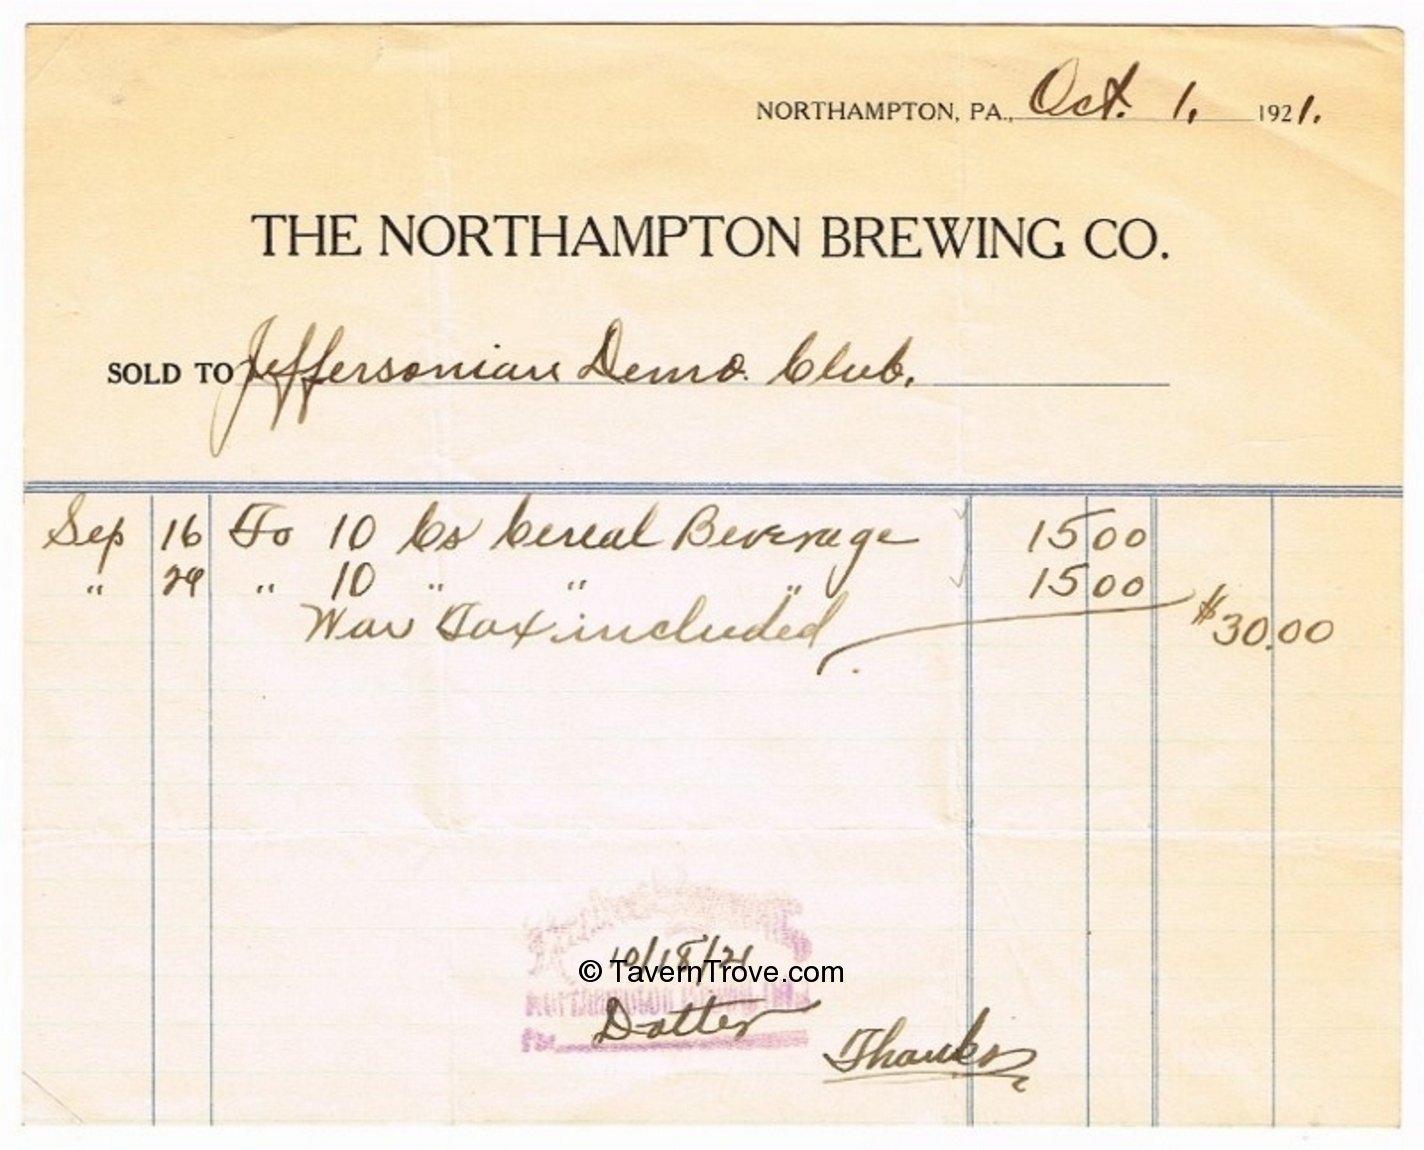 NORTHAMPTON, PA., Oct. 1, 1921.
THE NORTHAMPTON BREWING CO.
SOLD TO Jeffersonian Demo. Club.
Sep 16 To 10 Cs Cereal Beverage 15 00
" 29 " 10 " " " 15 00
War Tax included $30.00
10/18/21
© TavernTrove.com
NORTHAMPTON BREWING CO.
Per Dotter
Thanks